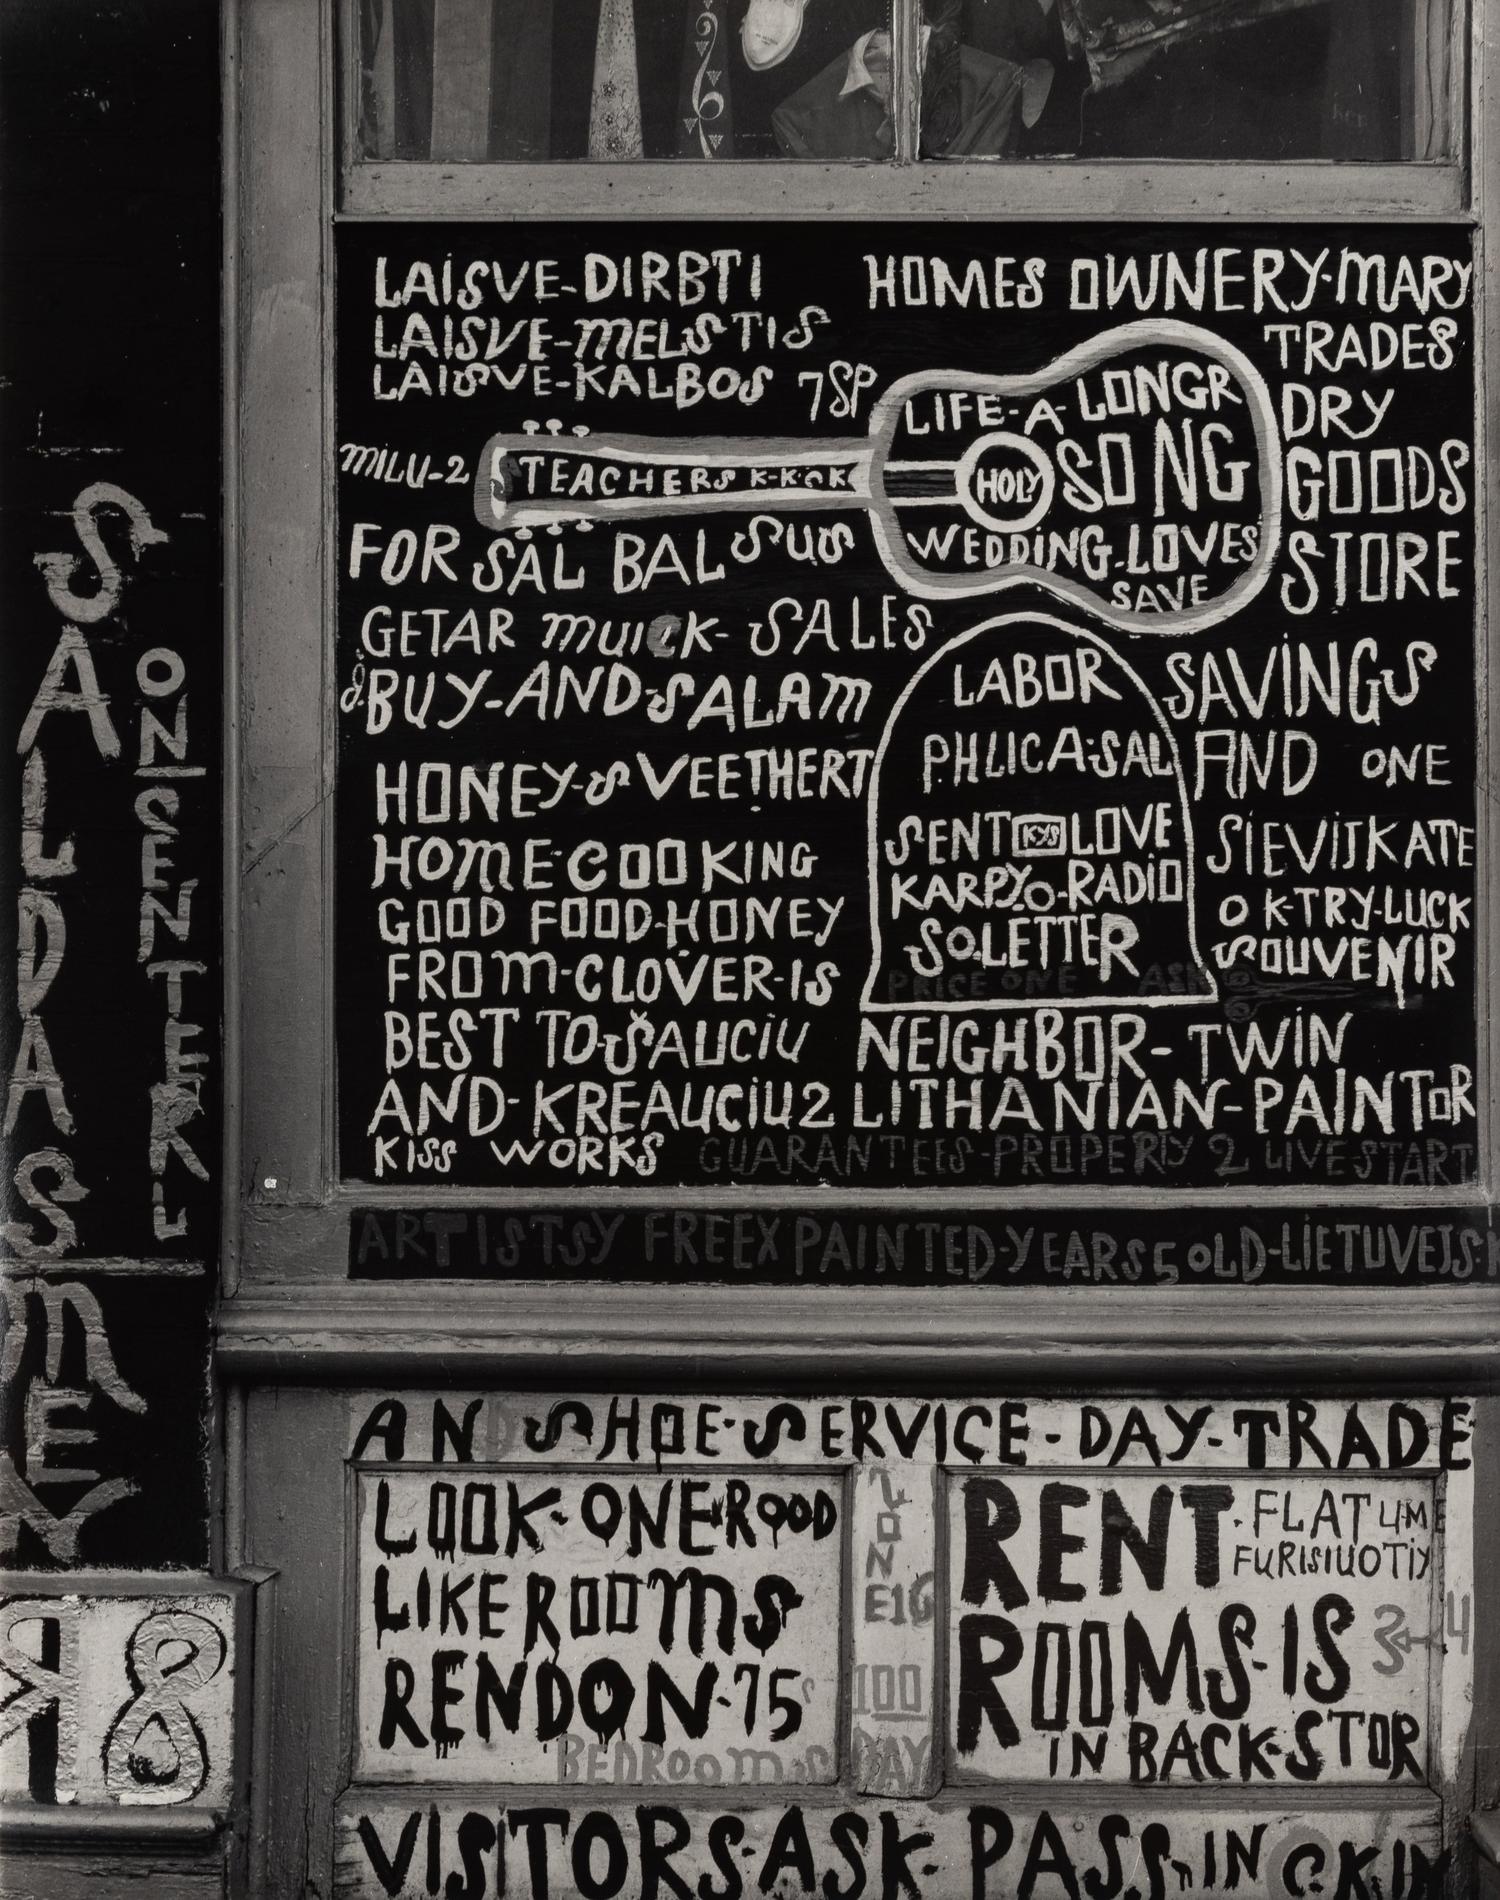 LAISVE-DIRBTI
LAISVE-MELSTIS
LAISVE-KALBOS 7SP
MILU-2
STEACHERS K-K-OK
FOR SAL BAL SUS
GETAR MUICK-SALES
BUY-AND-SALAM
HONEY-SVEETHERT
HOME-COOKING
GOOD FOOD-HONEY
FROM-CLOVER-IS
BEST TO-ŠAUCIU
AND-KREAUCIU2
KISS WORKS
HOMES OWNERY-MARY
TRADES
DRY
GOODS
STORE
LIFE-A-LONGR
HOLY SONG
WEDDING-LOVES
SAVE
LABOR
PHLICA-SAL
SENT KYS LOVE
KARPY.O-RADIO
SO.LETTER
PRICE ONE ASK
SAVINGS
AND ONE
SIEVIJKATE
OK-TRY-LUCK
SOUVENIR
NEIGHBOR-TWIN
LITHANIAN-PAINTOR
GUARANTEES-PROPERIY 2 LIVESTART
ARTISTSY FREEX PAINTED-YEARS5 OLD-LIETUVEJS-
SALDAS MEY
ONSENTERU
R8
AND SHOE-SERVICE-DAY-TRADE
LOOK-ONE-ROOD
LIKE ROOMS
RENDON-75
BEDROOMS
ONE16
100
DAY
RENT-FLAT U-ME
FURISIUOTIY
ROOMS-IS 3 4
IN BACK-STOR
VISITORS-ASK-PASS-IN